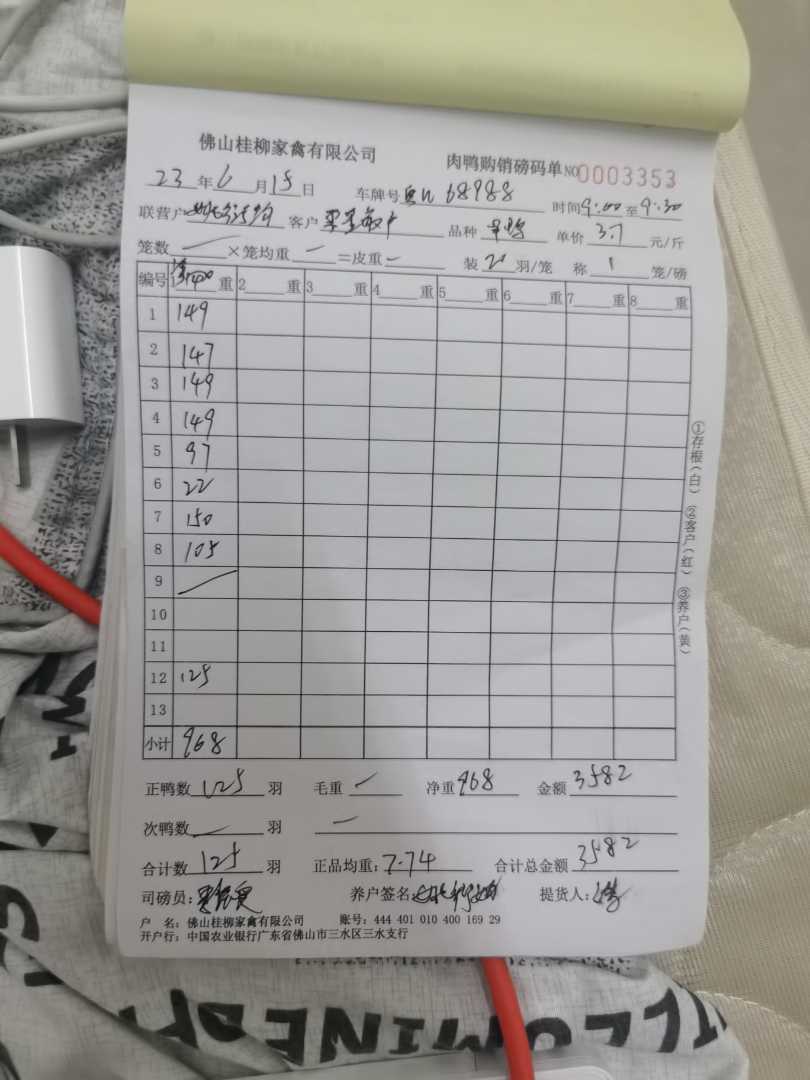 佛山桂柳家禽有限公司
肉鸭购销磅码单 NO 0003353
23 年 6 月 15 日 车牌号 68988 时间 9:00 至 9:30
联营户 客户 品种 单价 3.7 元/斤
笼数 — ×笼均重 — =皮重 — 装 20 羽/笼 称 1 笼/磅
编号 重 2 重 3 重 4 重 5 重 6 重 7 重 8 重
1 149
2 147
3 149
4 149
5 97
6 22
7 150
8 105
9
10
11
12 125
13
小计 968
正鸭数 125 羽 毛重 净重 968 金额 3582
次鸭数 — 羽 —
合计数 125 羽 正品均重: 7.74 合计总金额 3582
司磅员: 养户签名: 提货人:
户 名: 佛山桂柳家禽有限公司 账号: 444 401 010 400 169 29
开户行: 中国农业银行广东省佛山市三水区三水支行
①存根(白) ②客户(红) ③养户(黄)